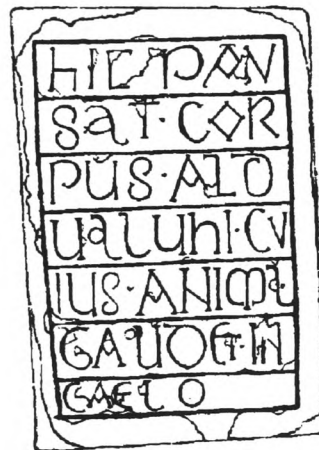 HIC PAN
SAT·COR
PUS·ALD
UALUHI·CV
IUS·ANIMA
GAUDET·IN
CAELO